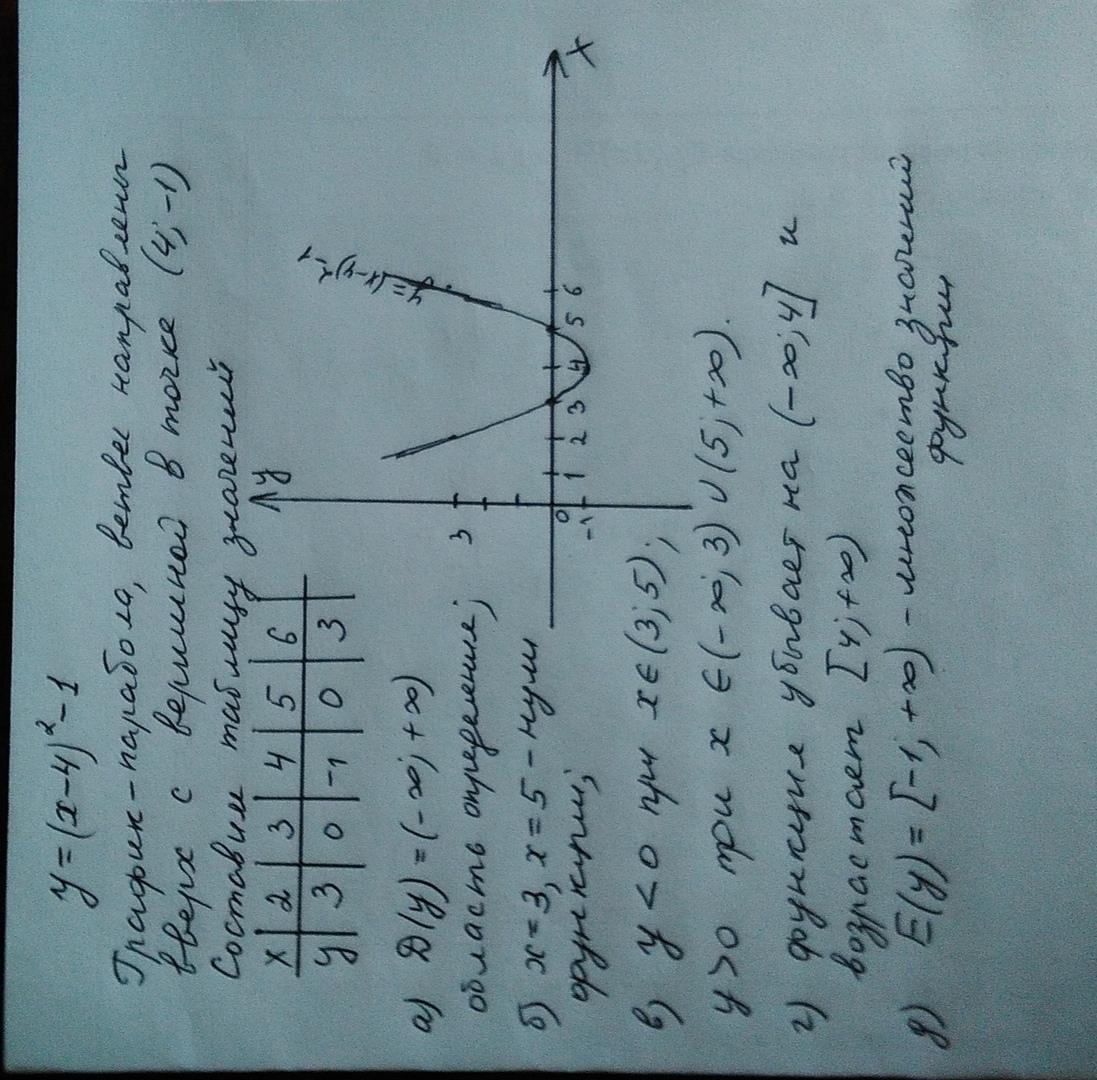 y = (x-4)² - 1
График - парабола, ветви направлены
вверх с вершиной в точке (4; -1)
Составим таблицу значений
x | 2 | 3 | 4 | 5 | 6 |
y | 3 | 0 | -1 | 0 | 3 |
y
y = (x-4)²-1
3
0 1 2 3 4 5 6
-1
X
а) D(y) = (-∞; +∞)
область определения;
б) x = 3, x = 5 - нули
функции;
в) y < 0 при x ∈ (3; 5);
y > 0 при x ∈ (-∞; 3) ∪ (5; +∞).
г) функция убывает на (-∞; 4] и
возрастает [4; +∞)
д) E(y) = [-1; +∞) - множество значений
функции